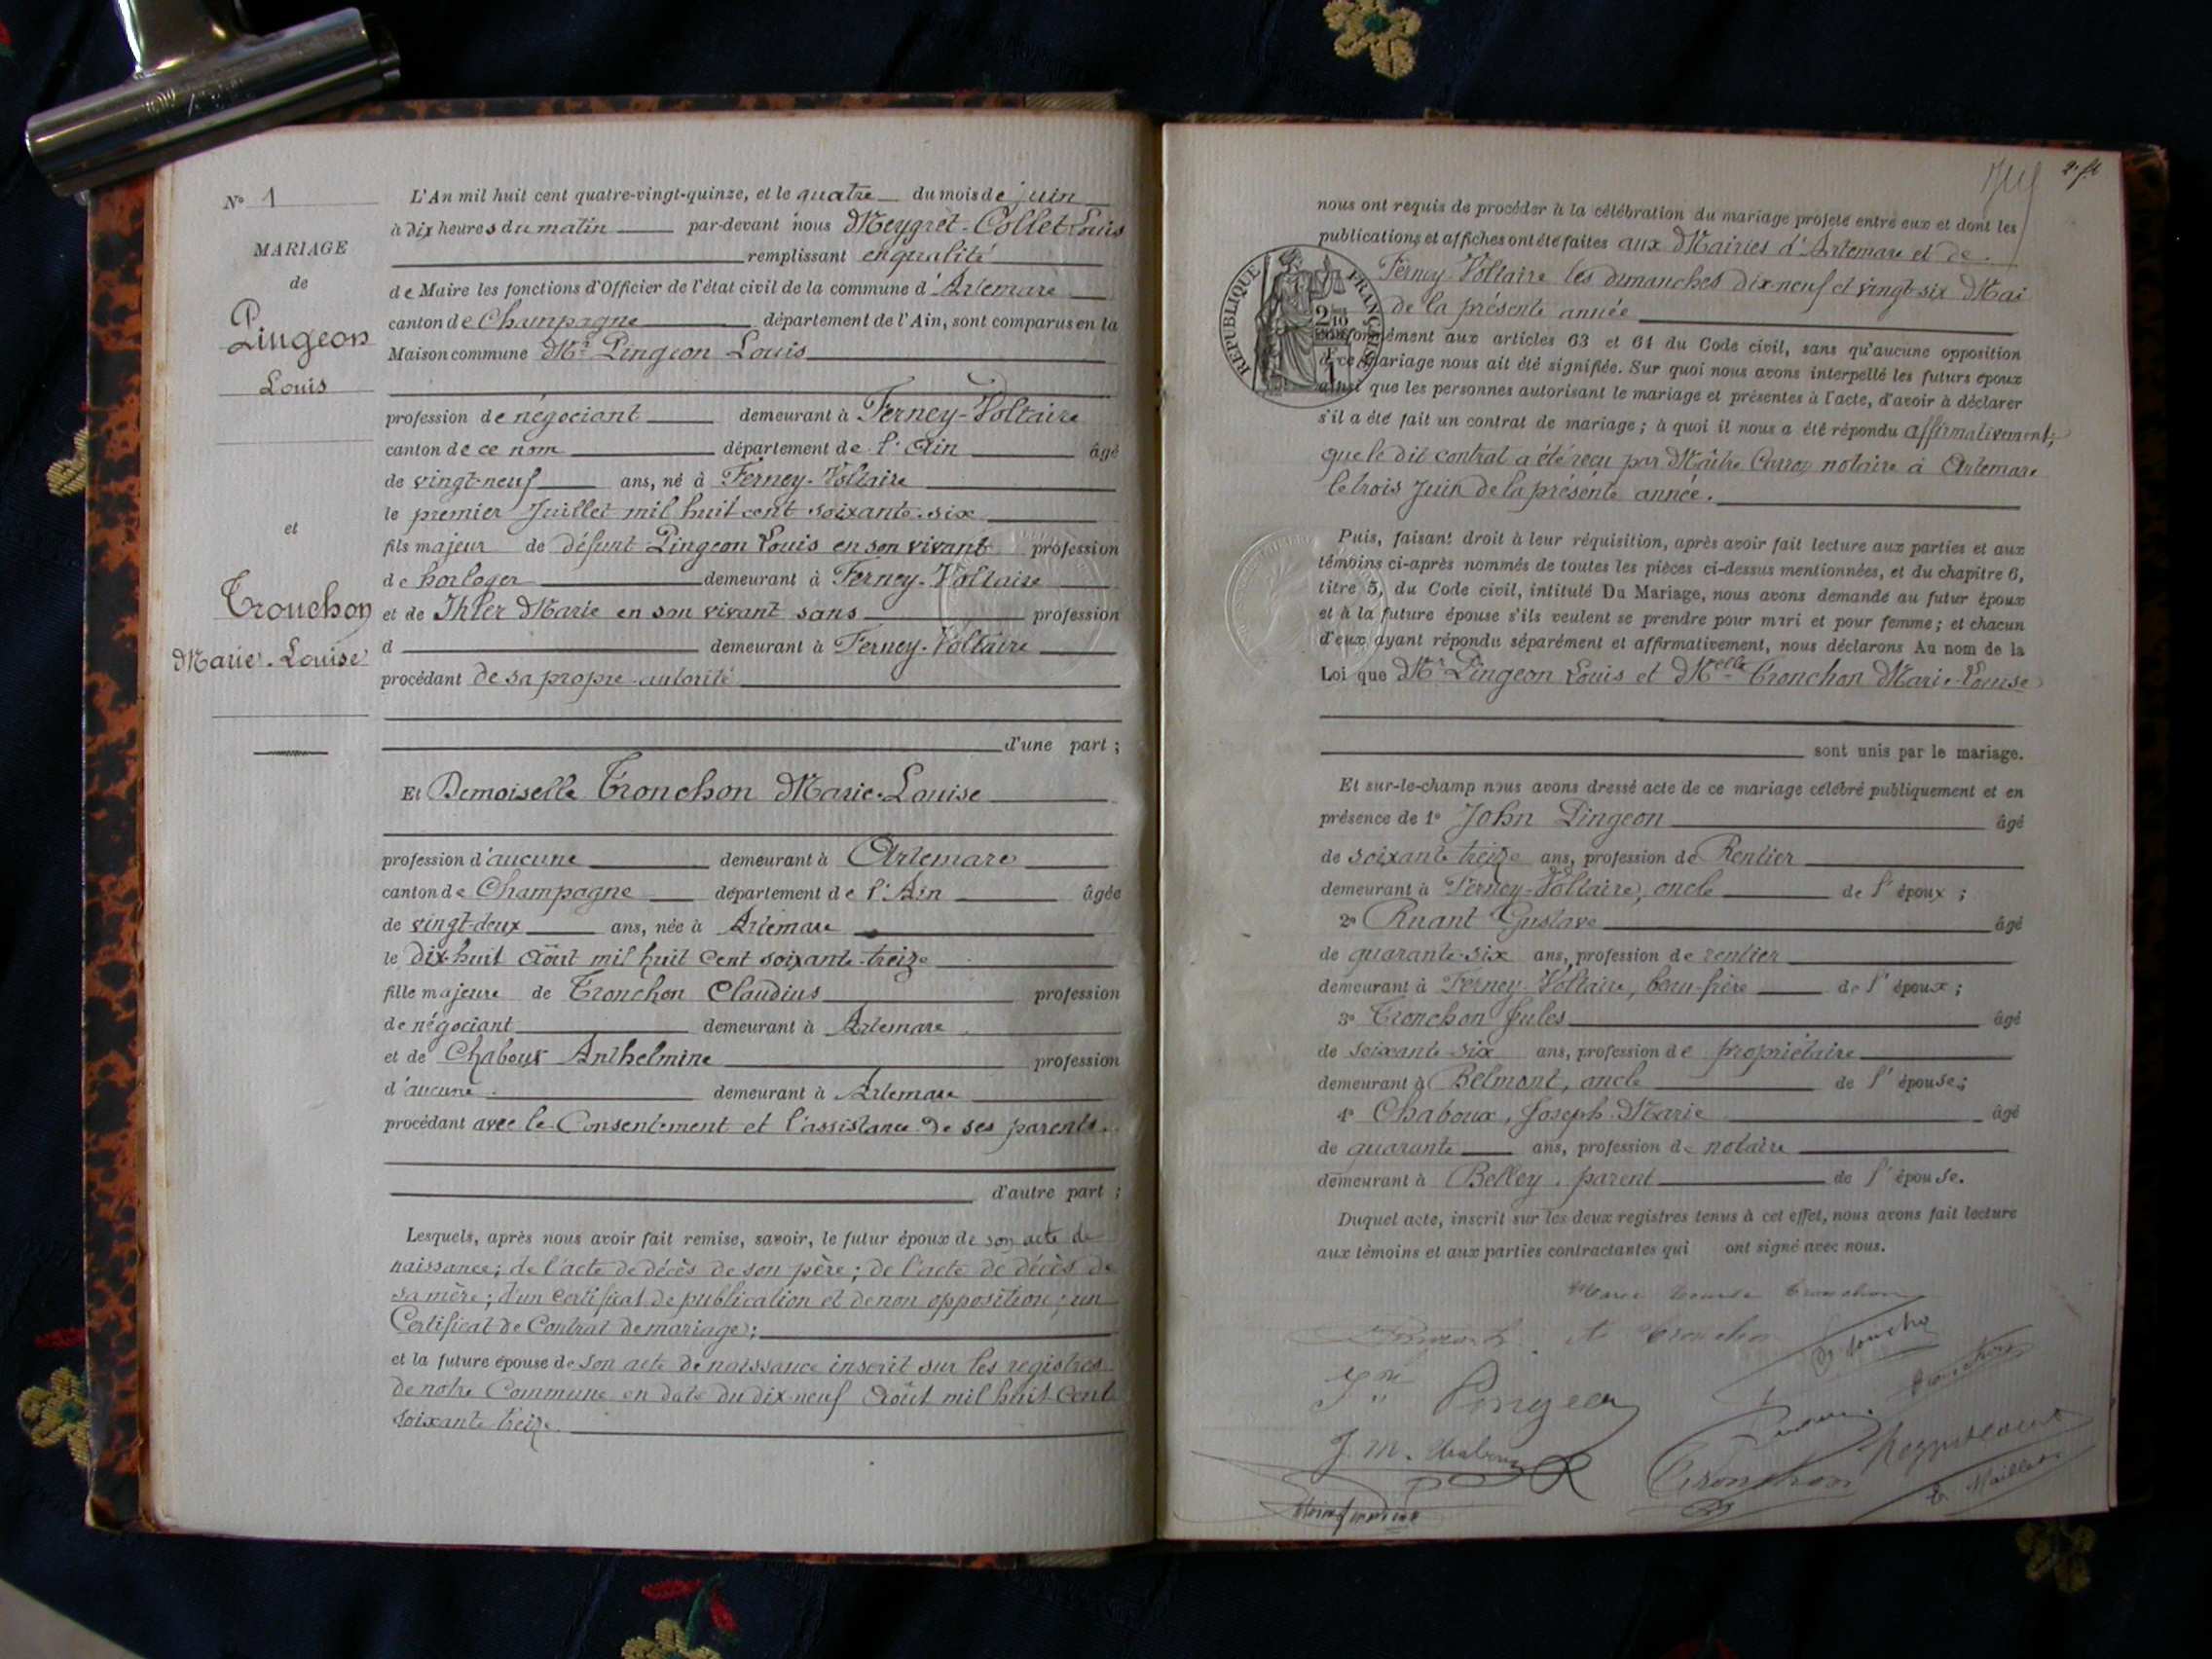 N° 1
MARIAGE
de
Pingeon
Louis
et
Tronchon
Marie-Louise
L'An mil huit cent quatre-vingt-quinze, et le quatre du mois de juin
à dix heures du matin par-devant nous Meygret-Collet Louis
remplissant en qualité
de Maire les fonctions d'Officier de l'état civil de la commune d'Artemare
canton de Champagne département de l'Ain, sont comparus en la
Maison commune Mr Pingeon Louis
profession de négociant demeurant à Ferney-Voltaire
canton de ce nom département de l'Ain âgé
de vingt-neuf ans, né à Ferney-Voltaire
le premier Juillet mil huit cent soixante-six
fils majeur de défunt Pingeon Louis en son vivant profession
de horloger demeurant à Ferney-Voltaire
et de Ihler Marie en son vivant sans profession
d demeurant à Ferney-Voltaire
procédant de sa propre autorité
d'une part ;
Et Demoiselle Tronchon Marie-Louise
profession d'aucune demeurant à Artemare
canton de Champagne département de l'Ain âgée
de vingt-deux ans, née à Artemare
le dix-huit Août mil huit cent soixante-treize
fille majeure de Tronchon Claudius profession
de négociant demeurant à Artemare
et de Chaboux Anthelmine profession
d'aucune demeurant à Artemare
procédant avec le Consentement et l'assistance de ses parents.
d'autre part ;
Lesquels, après nous avoir fait remise, savoir, le futur époux de son acte de
naissance ; de l'acte de décès de son père ; de l'acte de décès de
sa mère ; d'un certificat de publication et de non opposition ; un
Certificat de Contrat de mariage ;
et la future épouse de son acte de naissance inscrit sur les registres
de notre Commune en date du dix-neuf Août mil huit cent
soixante treize.
2e ft
nous ont requis de procéder à la célébration du mariage projeté entre eux et dont les
publications et affiches ont été faites aux Mairies d'Artemare et de
Ferney-Voltaire les dimanches dix-neuf et vingt-six Mai
de la présente année
RÉPUBLIQUE FRANÇAISE
conformément aux articles 63 et 64 du Code civil, sans qu'aucune opposition
à ce mariage nous ait été signifiée. Sur quoi nous avons interpellé les futurs époux
ainsi que les personnes autorisant le mariage et présentes à l'acte, d'avoir à déclarer
s'il a été fait un contrat de mariage ; à quoi il nous a été répondu affirmativement,
que le dit contrat a été reçu par Maître notaire à Artemare
le trois Juin de la présente année.
Puis, faisant droit à leur réquisition, après avoir fait lecture aux parties et aux
témoins ci-après nommés de toutes les pièces ci-dessus mentionnées, et du chapitre 6,
titre 5, du Code civil, intitulé Du Mariage, nous avons demandé au futur époux
et à la future épouse s'ils veulent se prendre pour mari et pour femme ; et chacun
d'eux ayant répondu séparément et affirmativement, nous déclarons Au nom de la
Loi que Mr Pingeon Louis et Melle Tronchon Marie-Louise
sont unis par le mariage.
Et sur-le-champ nous avons dressé acte de ce mariage célébré publiquement et en
présence de 1° John Pingeon âgé
de soixante treize ans, profession de Rentier
demeurant à Ferney-Voltaire, oncle de l'époux ;
2° Ruant Gustave âgé
de quarante-six ans, profession de rentier
demeurant à Ferney-Voltaire, beau-frère de l'époux ;
3° Tronchon Jules âgé
de soixante-six ans, profession de propriétaire
demeurant à Belmont, oncle de l'épouse ;
4° Chaboux, Joseph-Marie âgé
de quarante ans, profession de notaire
demeurant à Belley, parent de l'épouse.
Duquel acte, inscrit sur les deux registres tenus à cet effet, nous avons fait lecture
aux témoins et aux parties contractantes qui ont signé avec nous.
Marie Louise Tronchon
Tronchon
Jn Pingeon
J. M. Chaboux
Tronchon